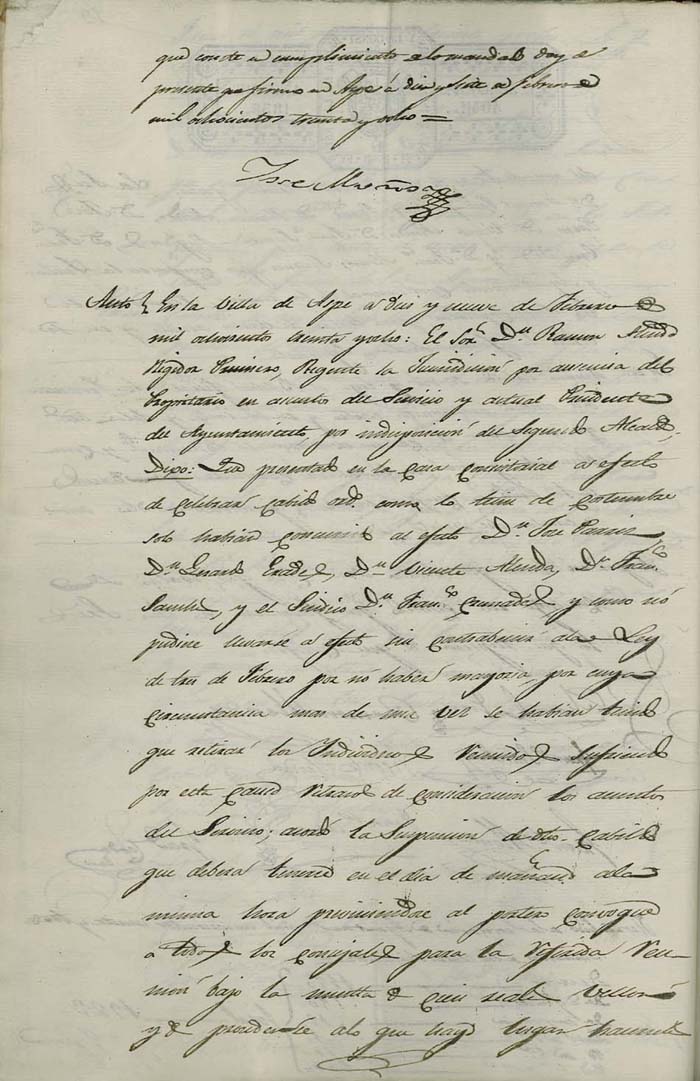 que conste en cumplimiento de lo mandado doy el
presente que firmo en Aspe á diez y siete de febrero de
mil ochocientos treinta y ocho =
Jose
Auto En la Villa de Aspe á diez y nueve de Febrero de
mil ochocientos treinta y ocho: El Sor. Dn. Ramon
Regidor Primero, Regente la Jurisdicion por ausencia del
Propietario en asunto del Servicio y actual Presidente
del Ayuntamiento por indisposicion del Segundo Alcalde,
Dijo: Que presentado en la Casa Consistorial al efecto
de celebrar Cabildo ord. como lo tiene de costumbre
solo habian concurrido al efecto Dn. Jose
Dn. Dn. Vicente Dn. Franco.
Sanchez, y el Sindico Dn. Franco. y como nó
pudiese llevarse á efecto sin contrabencion á la Ley
de tres de Febrero por nó haber mayoria, por cuya
circunstancia mas de una vez se habian tenido
que retirar los Individuos reunidos sufriendo
por esta causa retraso de consideracion los asuntos
del Servicio; acordó la Suspension de dho. Cabildo
que deberá tenerse en el dia de mañana á la
misma hora previniendose al portero convoque
a todos los concejales para la referida reu-
nion bajo la multa de cien reales vellon
y de procederse á lo que haya lugar